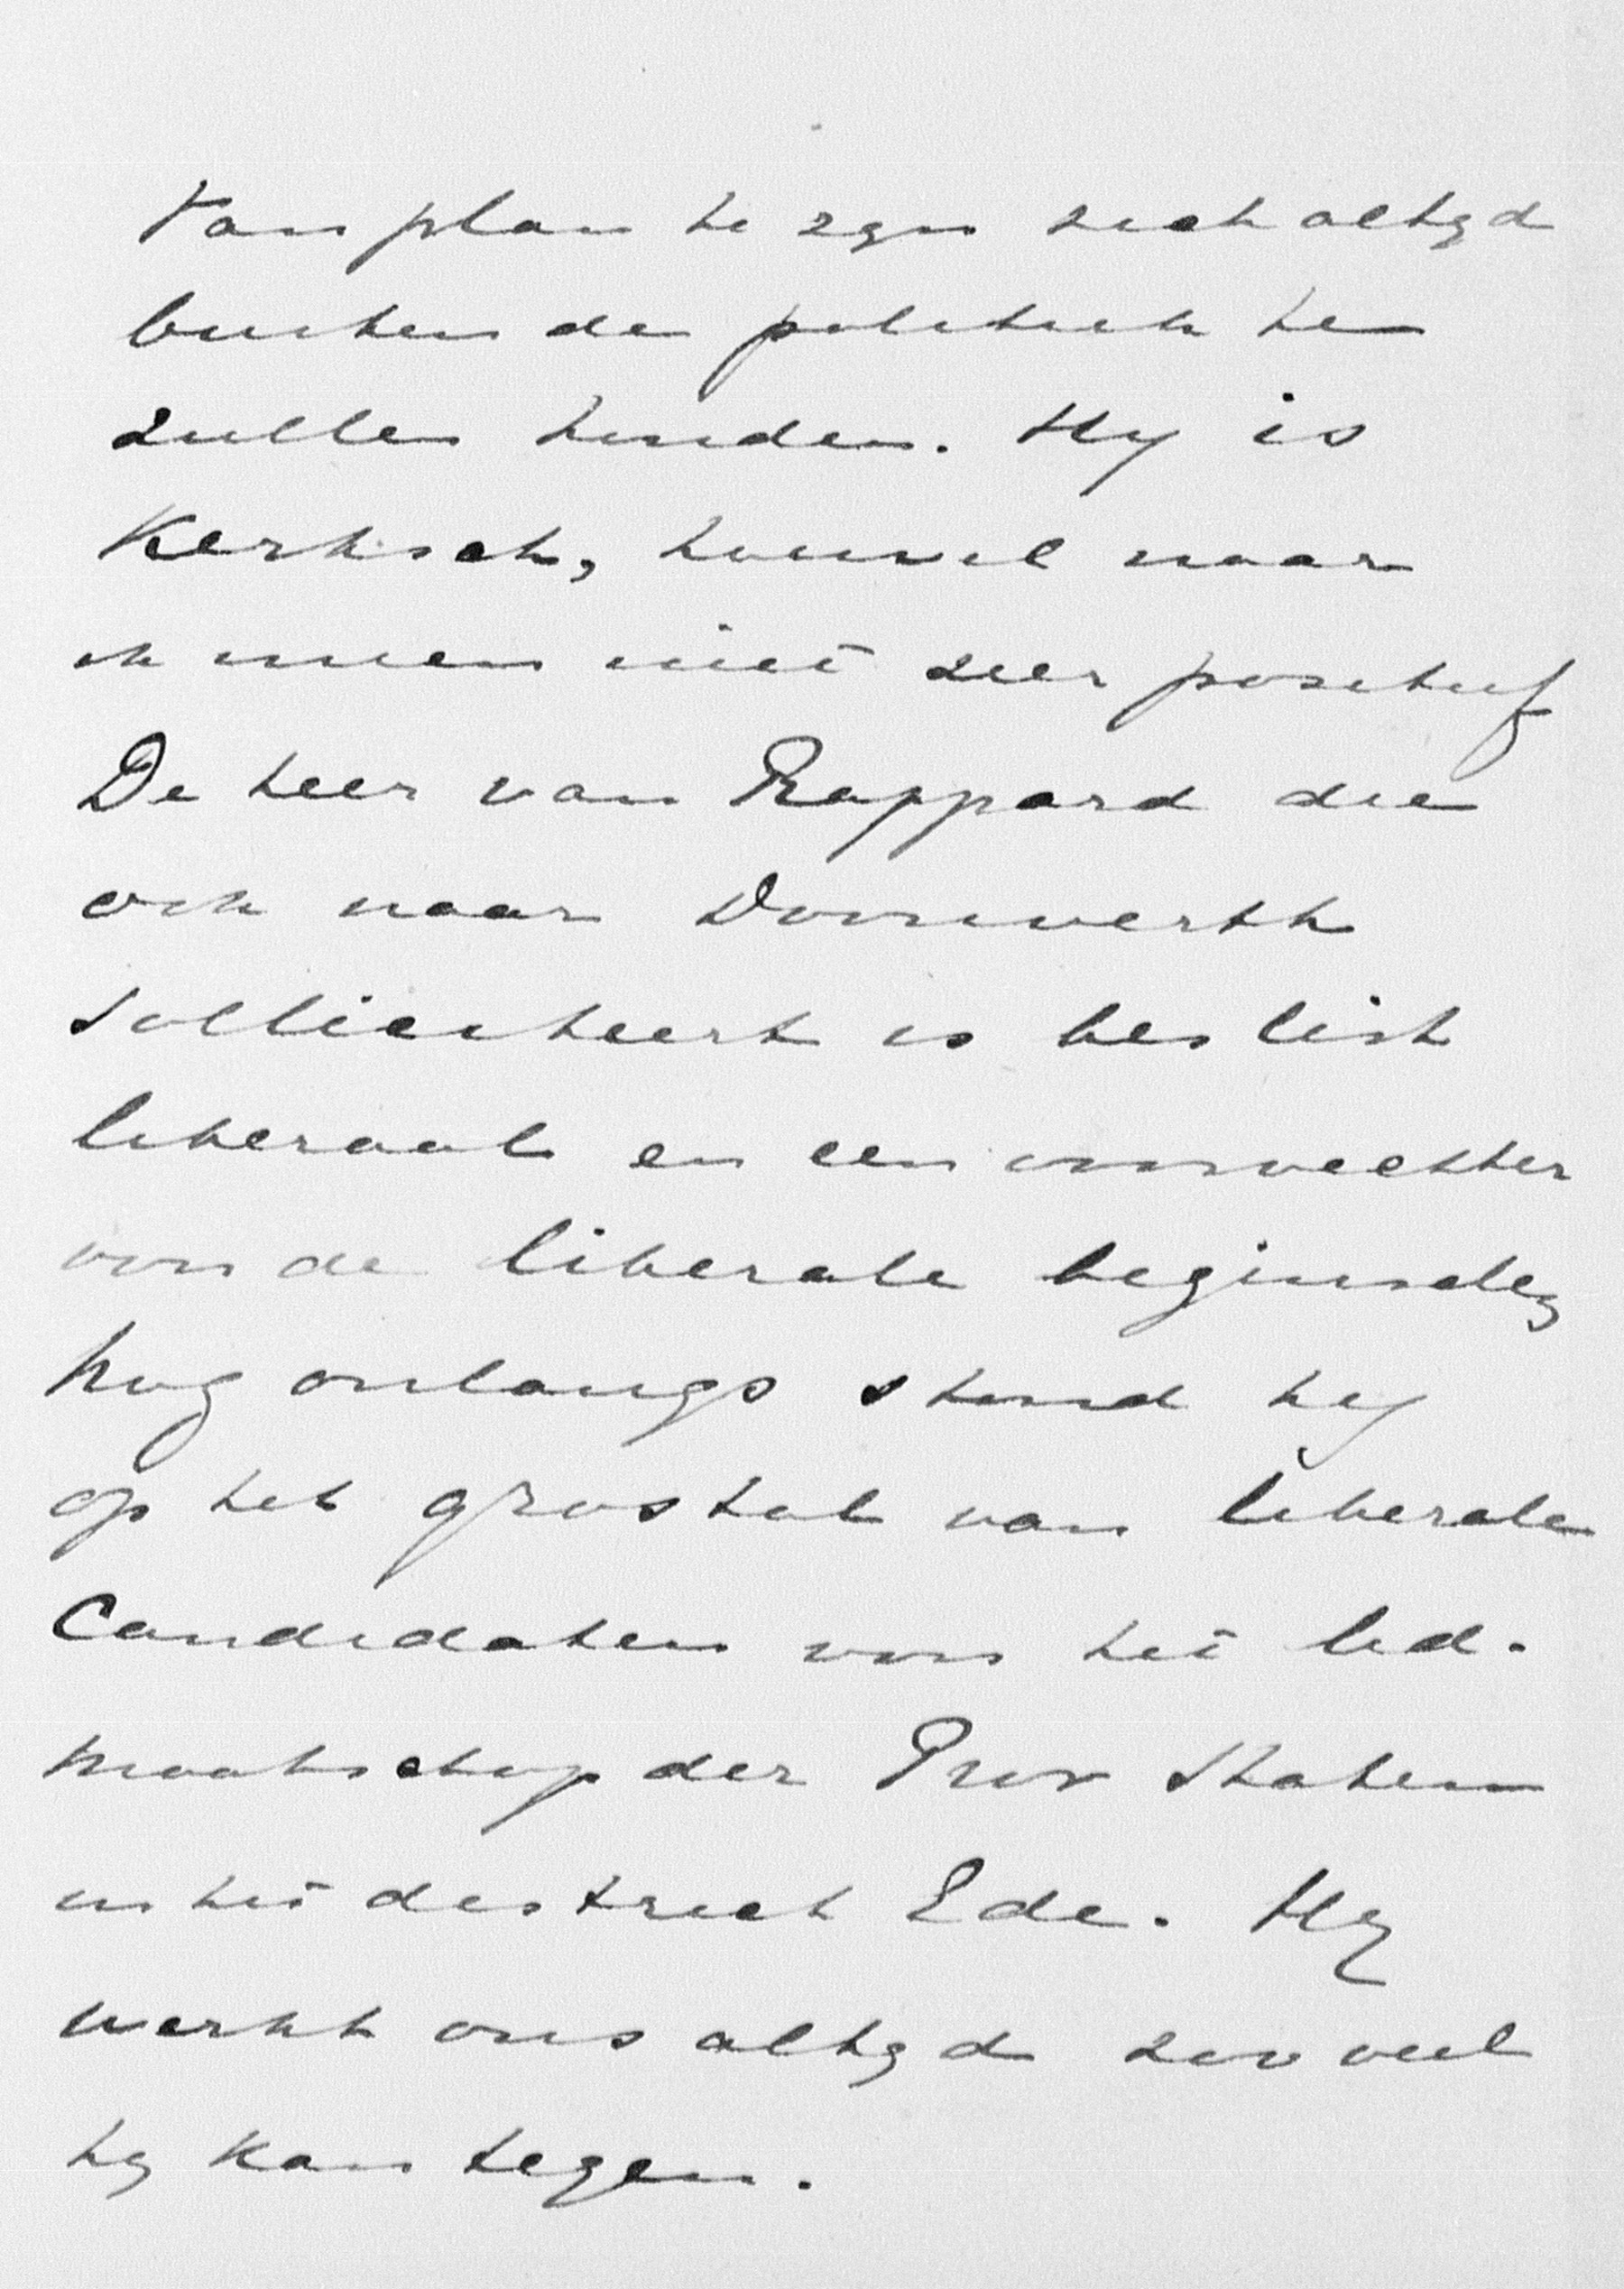 Van plan te zijn zich altijd
buiten de politiek te
zullen houden. Hij is
Kerksch, hoewel naar
ik meen niet zeer positief
De heer van Rappard die
ook naar Doorwerth
solliciteert is beslist
liberaal en een voorvechter
voor de liberale beginselen
Nog onlangs stond hij
op het grostal van liberale
Candidaten voor het lid-
maatschap der Prov Staten
in het district Ede. Hij
werkt ons altijd zooveel
hij kan tegen.